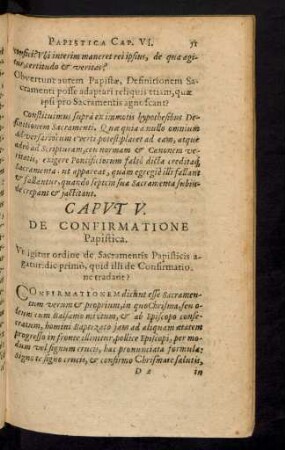 PAPISTICA CAP. VI. 51
confici? Ubi interim maneret rei ipsius, de qua agi-
tur certitudo & veritas?
Obvertunt autem Papistæ, Definicionem Sa-
cramenti posse adaptari reliquis etiam, quæ
ipsi pro Sacramentis agnoscant?
Constituimus suprà ex immotis hypothesibus De-
finitionem Sacramenti. Quæ quia a nullo omnium
adversariorum everti potest, placet ad eam, atque
adeò ad Scripturam, ceu normam & Canonem ve-
ritatis, exigere Pontificiorum falsò dicta creditaq;
Sacramenta: ut appareat, quàm egregiè illi fallant
& fallantur, quando septem sua Sacramenta subin-
de crepant & jactitant.
CAPVT V.
DE CONFIRMATIONE
Papistica.
Ut igitur ordine de Sacramentis Papisticis a-
gatur: dic primò, quid illi de Confirmatio-
ne tradant?
CONFIRMATIONEM dicunt esse Sacramen-
tum verum & proprium, in quo Chrisma, seu o-
leum cum Balsamo mixtum, & ab Episcopo conse-
cratum, homini Baptizato jam ad aliquam ætatem
progresso in fronte illinitur, pollice Episcopi, per mo-
dum vel signum crucis, hac pronunciata formula:
Signo te signo crucis, & confirmo Chrismate salutis,
D 2 in